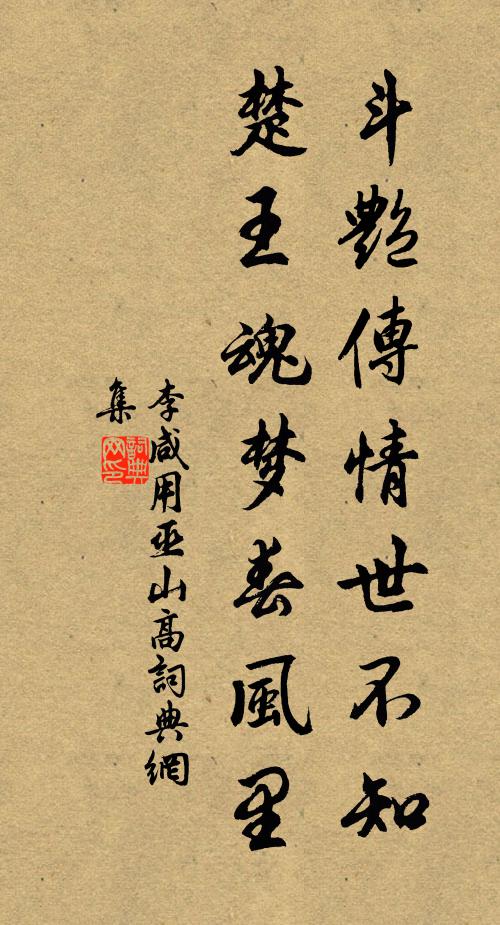 斗艷傳情世不知
楚王魂梦春風里
李咸用巫山高詞典網
集
詞典网印